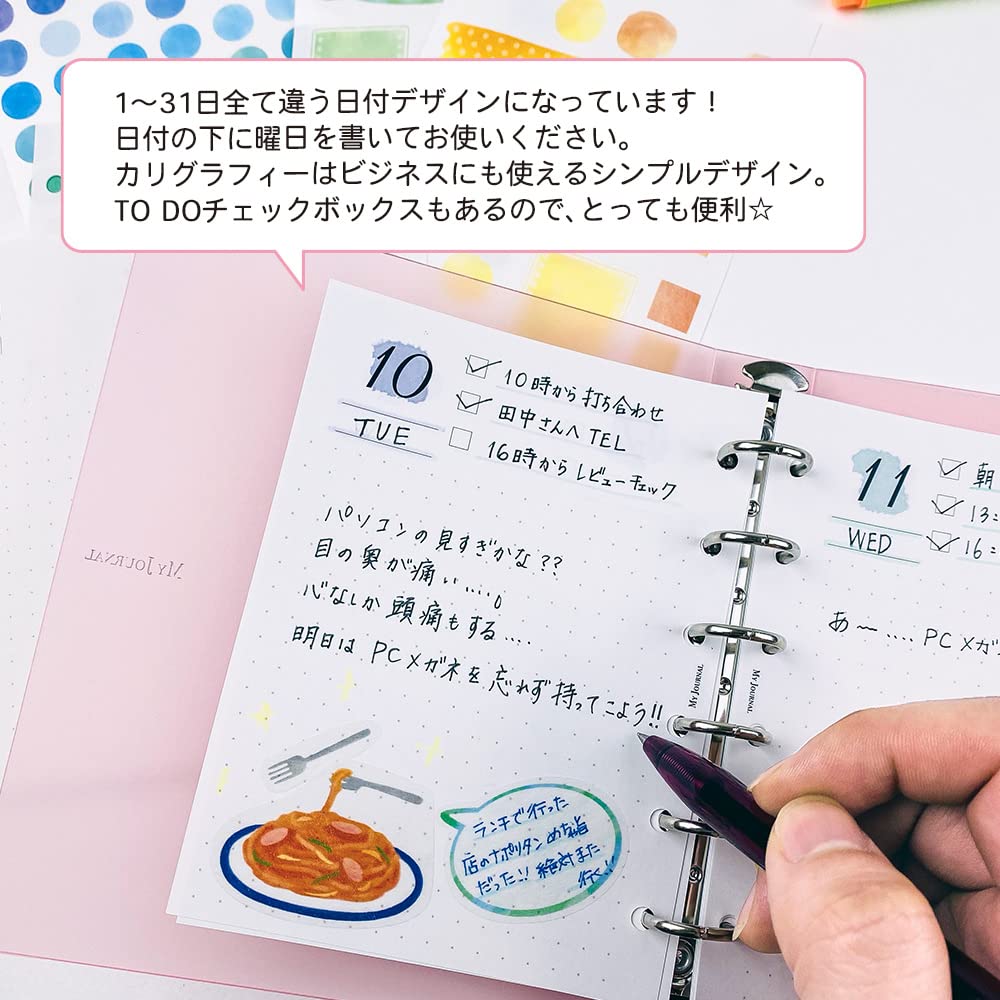 1～31日全て違う日付デザインになっています！
日付の下に曜日を書いてお使いください。
カリグラフィーはビジネスにも使えるシンプルデザイン。
TO DOチェックボックスもあるので、とっても便利☆
10
TUE
10時から打ち合わせ
田中さんへ TEL
16時からレビューチェック
パソコンの見すぎかな??
目の奥が痛い....。
心なしか頭痛もする....
明日は PCメガネを忘れず持ってこよう!!
ランチで行った
店のナポリタン めちゃ旨
だった!! 絶対また
行く!!
MY JOURNAL
MY JOURNAL
MY JOURNAL
11
WED
朝
13:
16:
あ～....PCメガ